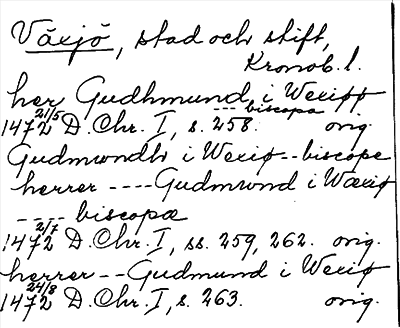 Växjö, stad och stift,
Kronob. l.
her Gudhmund i Wexiø
--- biscopa
1472 21/5 D. Chr. I, s. 258. orig.
Gudmwndh i Wexiø -- biscope
herrer ---- Gudmwnd i Wæxiø
---- biscopæ
1472 2/7 D. Chr. I, ss. 259, 262. orig.
herrer -- Gudmund i Wexiø
1472 24/8 D. Chr. I, s. 263. orig.